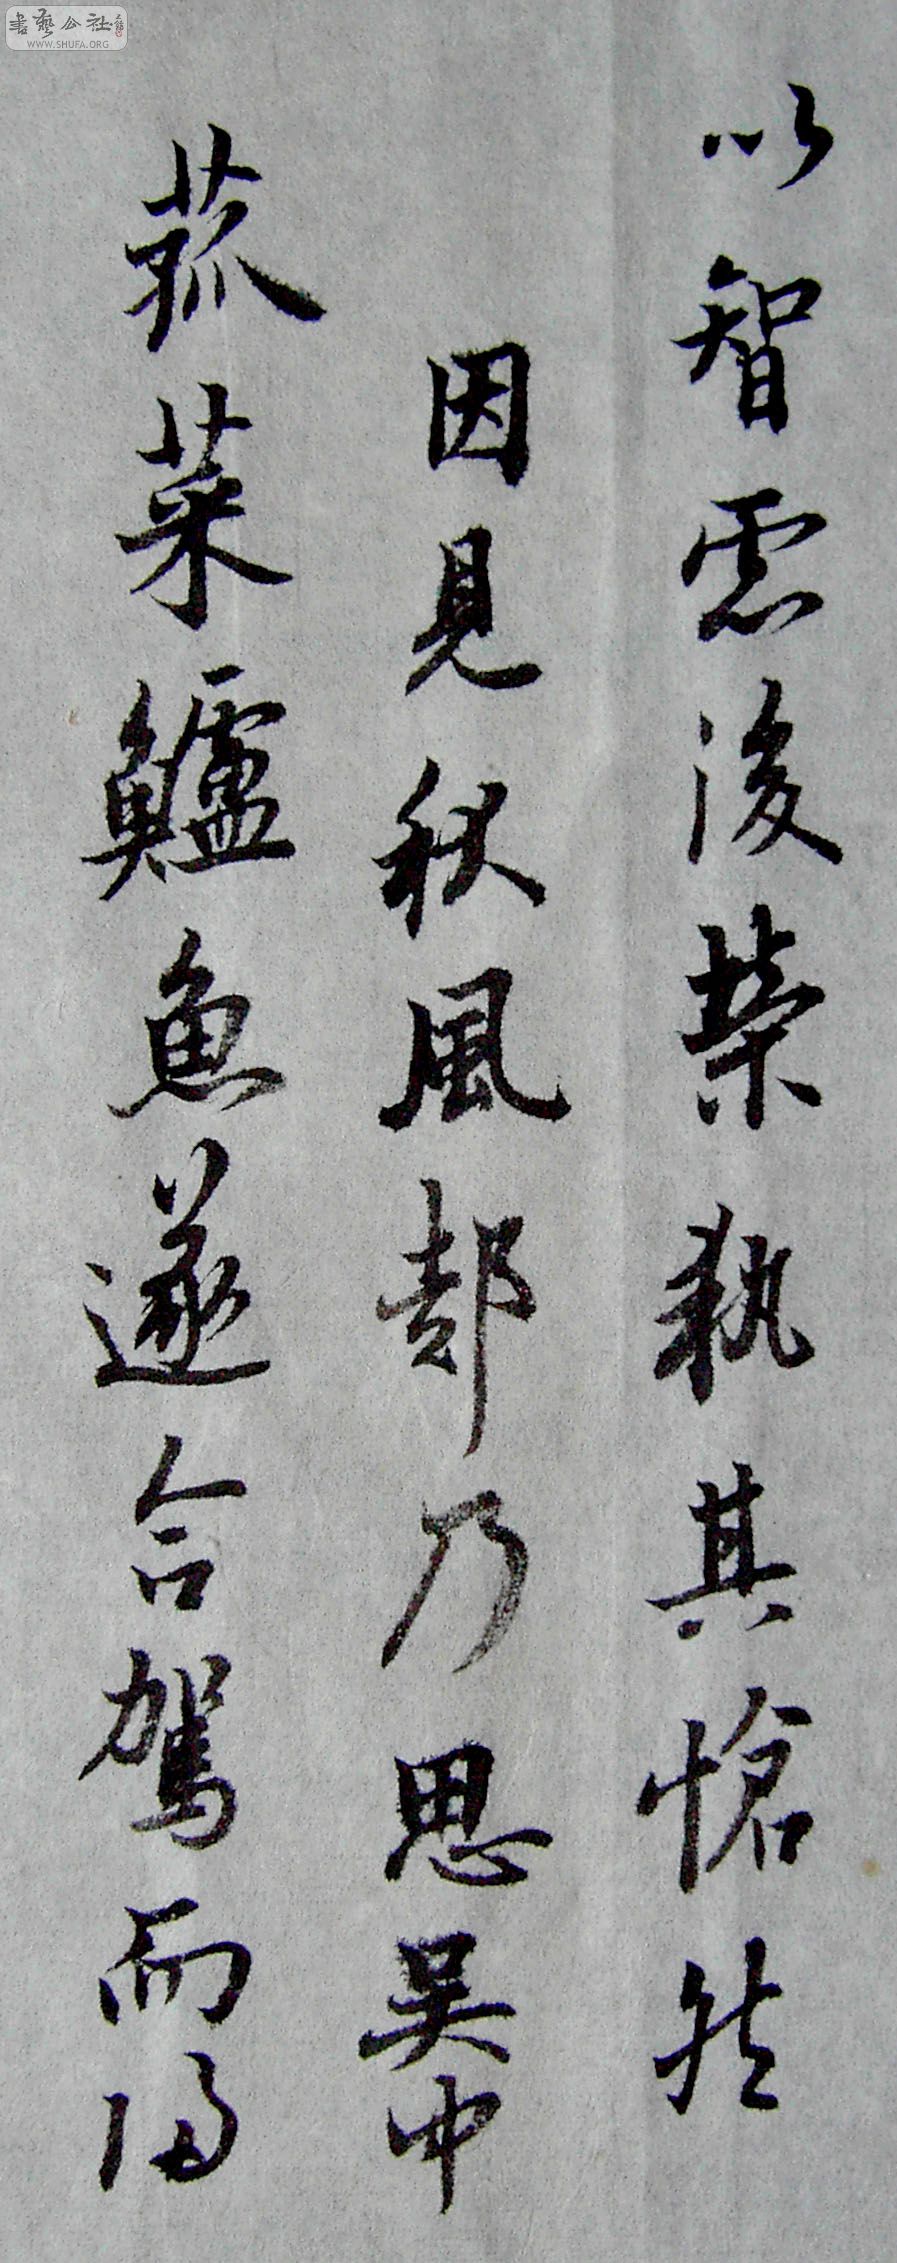 以智慮後榮執其愴然
因見秋風起乃思吳中
菰菜鱸魚遂命駕而歸
書藝公社
WWW.SHUFA.ORG